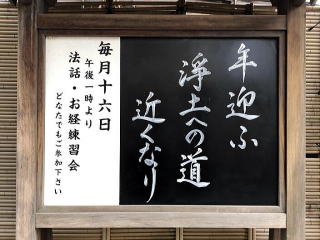 年迎ふ
淨土への道
近くなり
毎月十六日
午後一時より
法話・お経練習会
どなたでもご参加下さい